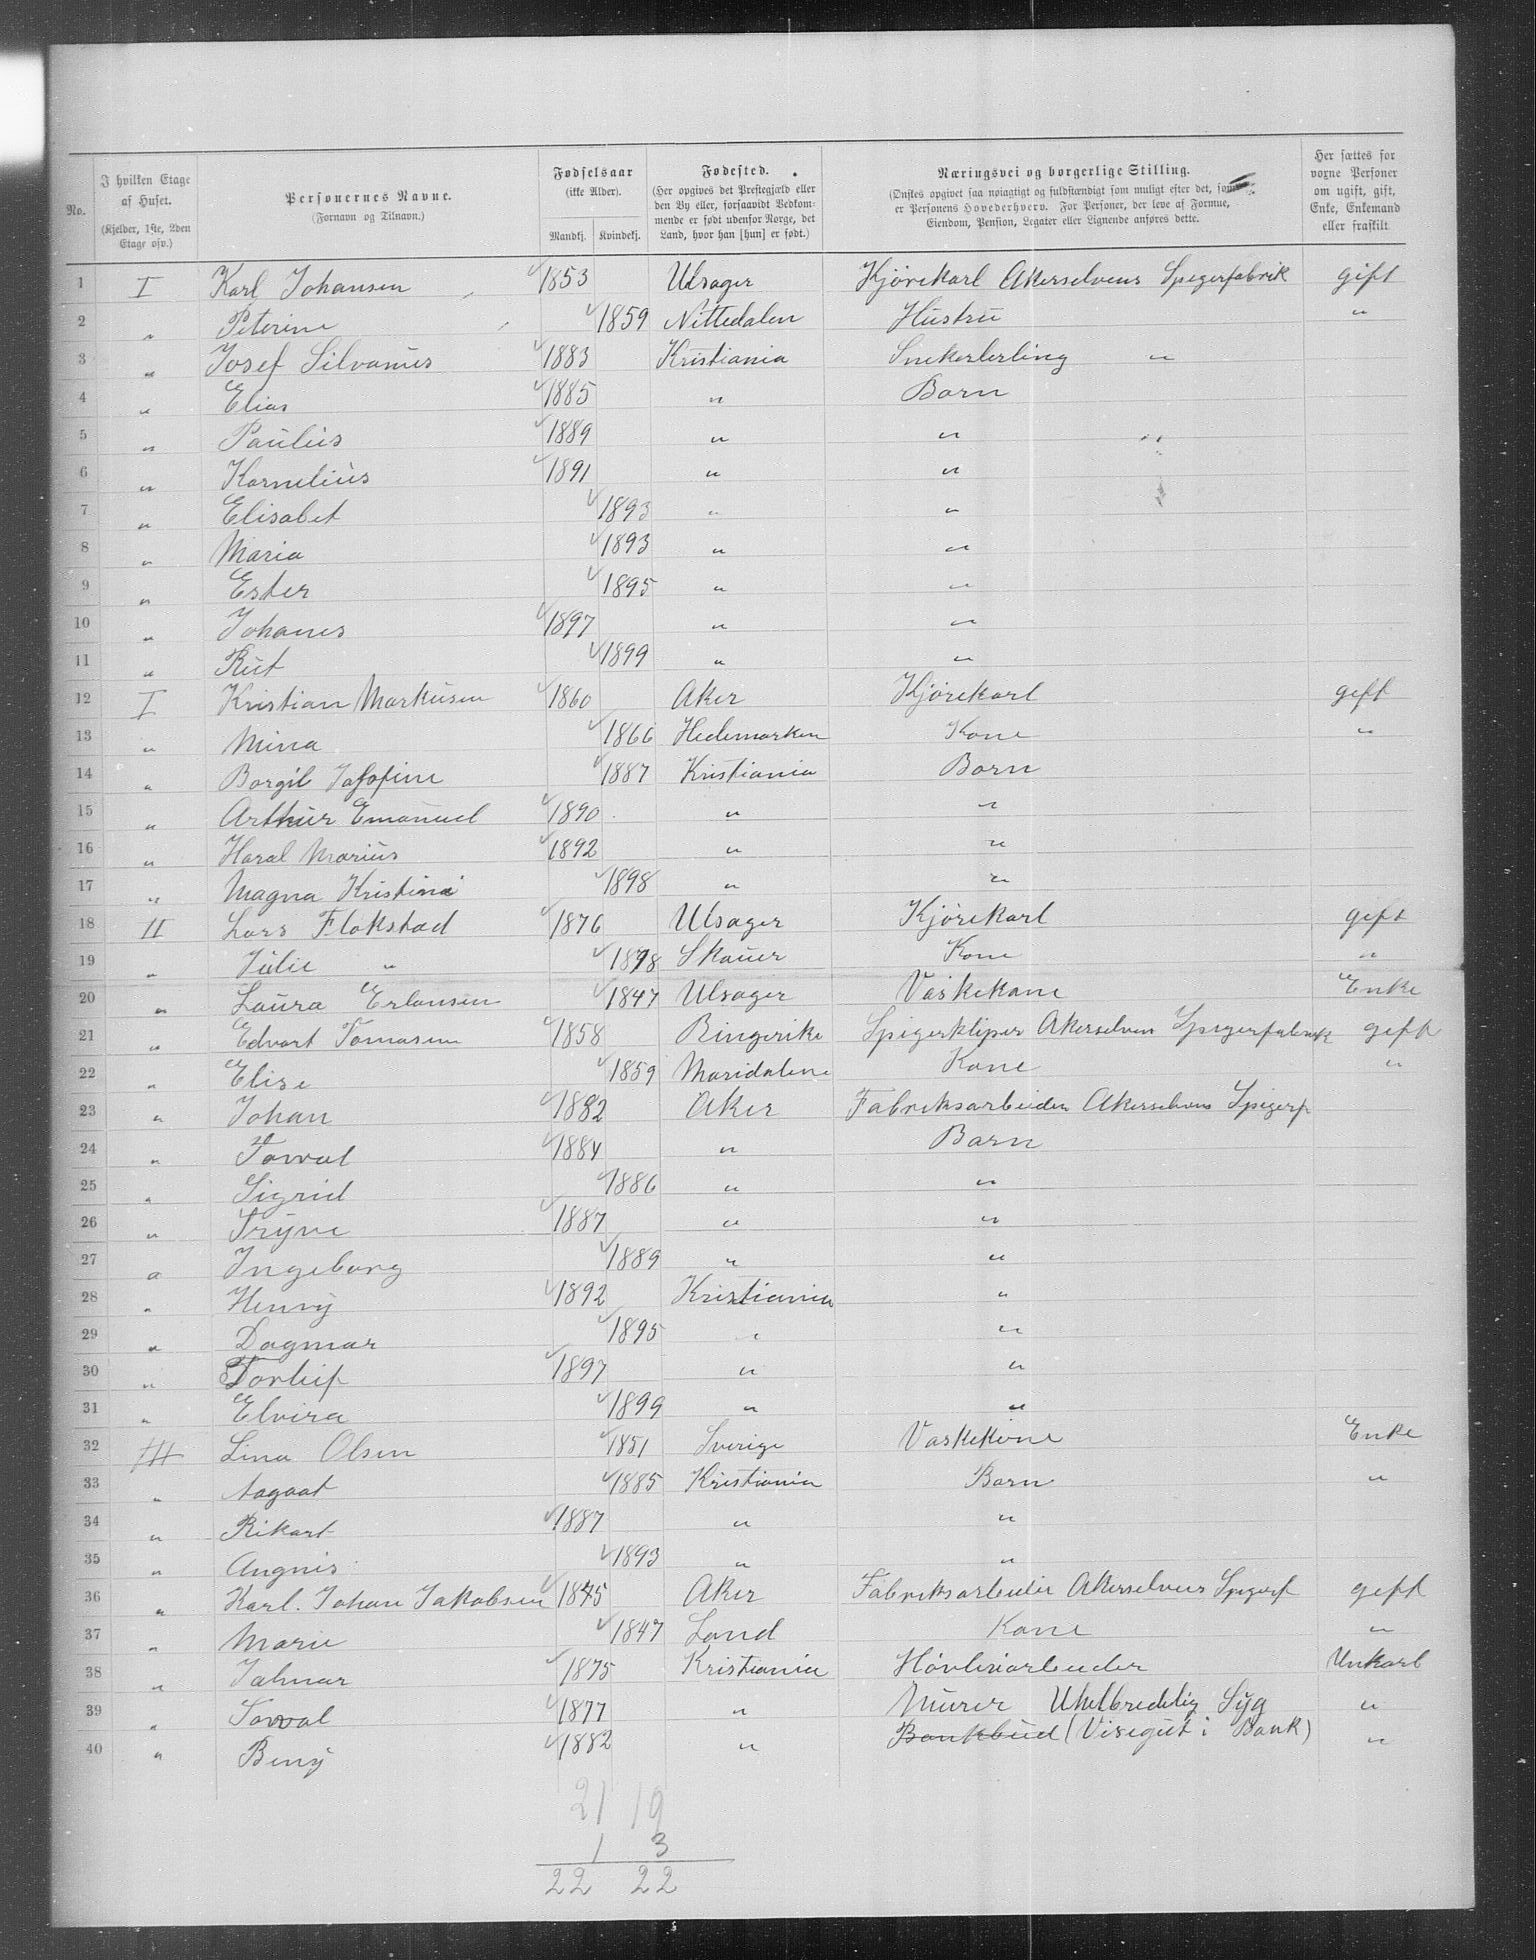 No. | I hvilken Etage af Huset. (Kjelder, 1ste, 2den Etage osv.) | Personernes Navne. (Fornavn og Tilnavn.) | Fødselsaar (ikke Alder). Mandkj. Kvindekj. | Fødested. (Her opgives det Prestegjæld eller den By eller, forsaavidt Vedkommende er født udenfor Norge, det Land, hvor han [hun] er født.) | Næringsvei og borgerlige Stilling. (Ønskes opgivet saa nøiagtigt og fuldstændigt som muligt efter det, som er Personens Hovederhverv. For Personer, der leve af Formue, Eiendom, Pension, Legater eller Lignende anføres dette. | Her sættes for voxne Personer om ugift, gift, Enke, Enkemand eller fraskilt
1 I Karl Johansen 1853 Ulsager Kjørekarl Akerselvens Spigerfabrik gift
2 " Peterine 1859 Nittedalen Hustru "
3 " Josef Silvanus 1883 Kristiania Snekerlerling "
4 " Elias 1885 " Barn
5 " Paulus 1889 " "
6 " Kornelius 1891 " "
7 " Elisabet 1893 " "
8 " Maria 1893 " "
9 " Ester 1895 " "
10 " Johanes 1897 " "
11 " Rut 1899 " "
12 I Kristian Markusen 1860 Aker Kjørekarl gift
13 " Mina 1866 Hedemarken Kone "
14 " Borgil Jossofine 1887 Kristiania Barn
15 " Arthur Emanuel 1890 " "
16 " Haral Marius 1892 " "
17 " Magna Kristina 1898 " "
18 II Lars Flokstad 1876 Ulsager Kjørekarl gift
19 " Julie " 1878 Skauer Kone "
20 " Laura Erlansen 1847 Ulsager Vaskekone Enke
21 " Edvart Tomasen 1858 Ringerike Spigerkliper Akerselven Spigerfabrik gift
22 " Elise 1859 Maridalene Kone "
23 " Johan 1882 Aker Fabriksarbeider Akerselvens Spigerf
24 " Torval 1884 " Barn
25 " Sigrid 1886 " "
26 " Tryve 1887 " "
27 " Ingeborg 1889 " "
28 " Henry 1892 Kristiania "
29 " Dagmar 1895 " "
30 " Torleif 1897 " "
31 " Elvira 1899 " "
32 III Lina Olsen 1851 Sverige Vaskekone Enke
33 " Aagaat 1885 Kristiania Barn "
34 " Rikart 1887 " "
35 " Angnis 1893 " "
36 " Karl. Johan Jakobsen 1845 Aker Fabriksarbeider Akerselvens Spigerf gift
37 " Marie 1847 Land Kone "
38 " Jalmar 1875 Kristiania Høvleriarbeider Unkarl
39 " Torval 1877 " Murer Uhelbredelig Syg "
40 " Beny 1882 " Bankbud (Visegut i Bank) "
21 19
1 3
22 22